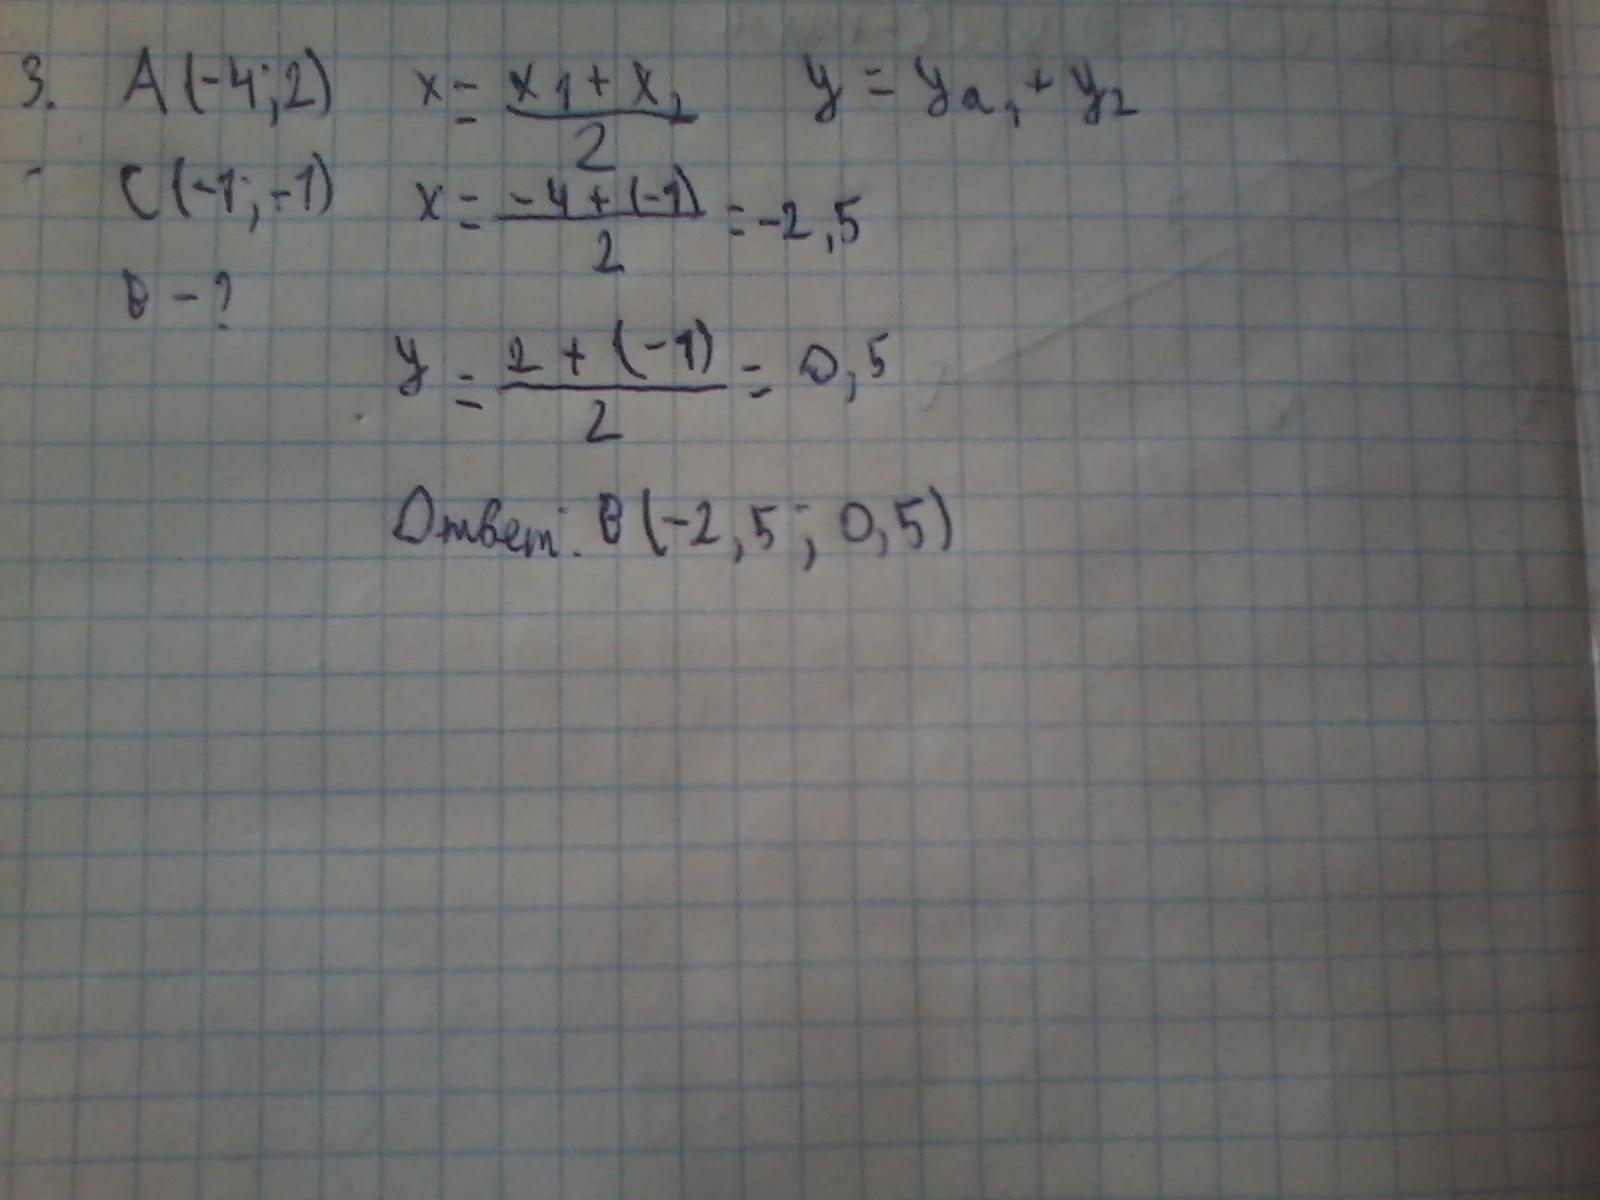 3. A (-4; 2) x = x1 + x2 / 2 y = ya1 + y2
C (-1; -1) x = -4 + (-1) / 2 = -2,5
B - ?
y = 2 + (-1) / 2 = 0,5
Ответ: B (-2,5; 0,5)